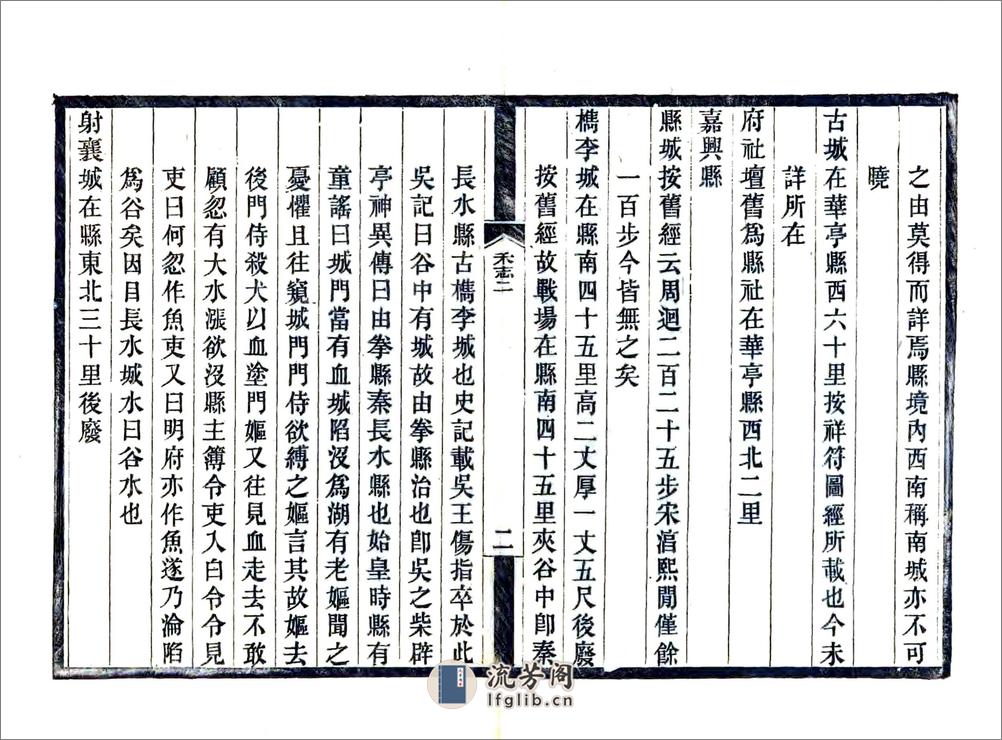 之由莫得而詳焉縣境內西南稱南城亦不可
曉
古城在華亭縣西六十里按祥符圖經所載也今未
詳所在
府社壇舊爲縣社在華亭縣西北二里
嘉興縣
縣城按舊經云周迴二百二十五步宋湻熙閒僅餘
一百步今皆無之矣
檇李城在縣南四十五里高二丈厚一丈五尺後廢
按舊經故戰場在縣南四十五里夾谷中卽秦
禾志二
二
長水縣古檇李城也史記載吳王傷指卒於此
吳記曰谷中有城故由拳縣治也卽吳之柴辟
亭神異傳曰由拳縣秦長水縣也始皇時縣有
童謠曰城門當有血城陷沒爲湖有老嫗聞之
憂懼且往窺城門門侍欲縛之嫗言其故嫗去
後門侍殺犬以血塗門嫗又往見血走去不敢
顧忽有大水漲欲沒縣主簿令吏入白令令見
吏曰何忽作魚吏又曰明府亦作魚遂乃淪陷
爲谷矣因目長水城水曰谷水也
射襄城在縣東北三十里後廢
流芳阁
lfglib.cn